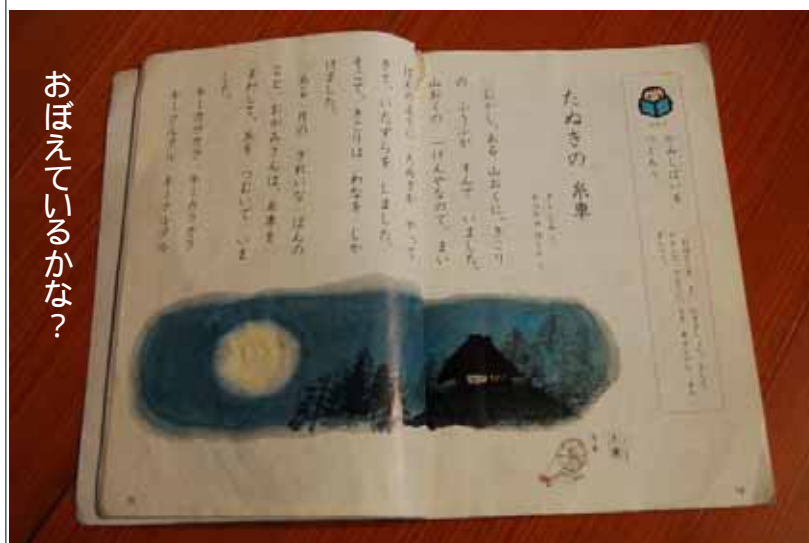 おぼえているかな？
かみしばいを
つくろう
たぬきの 糸車
むかし、ある 山おくに、きこり
の ふうふが すんで いました。
山おくの 一けんやなので、まい
ばんのように たぬきが やって
きて、いたずらを しました。
そこで、きこりは わなを しか
けました。
ある 月の きれいな ばんの
こと、おかみさんは、糸車を
まわして、糸を つむいで いま
した。
キーカラカラ キーカラカラ
キークルクル キークルクル